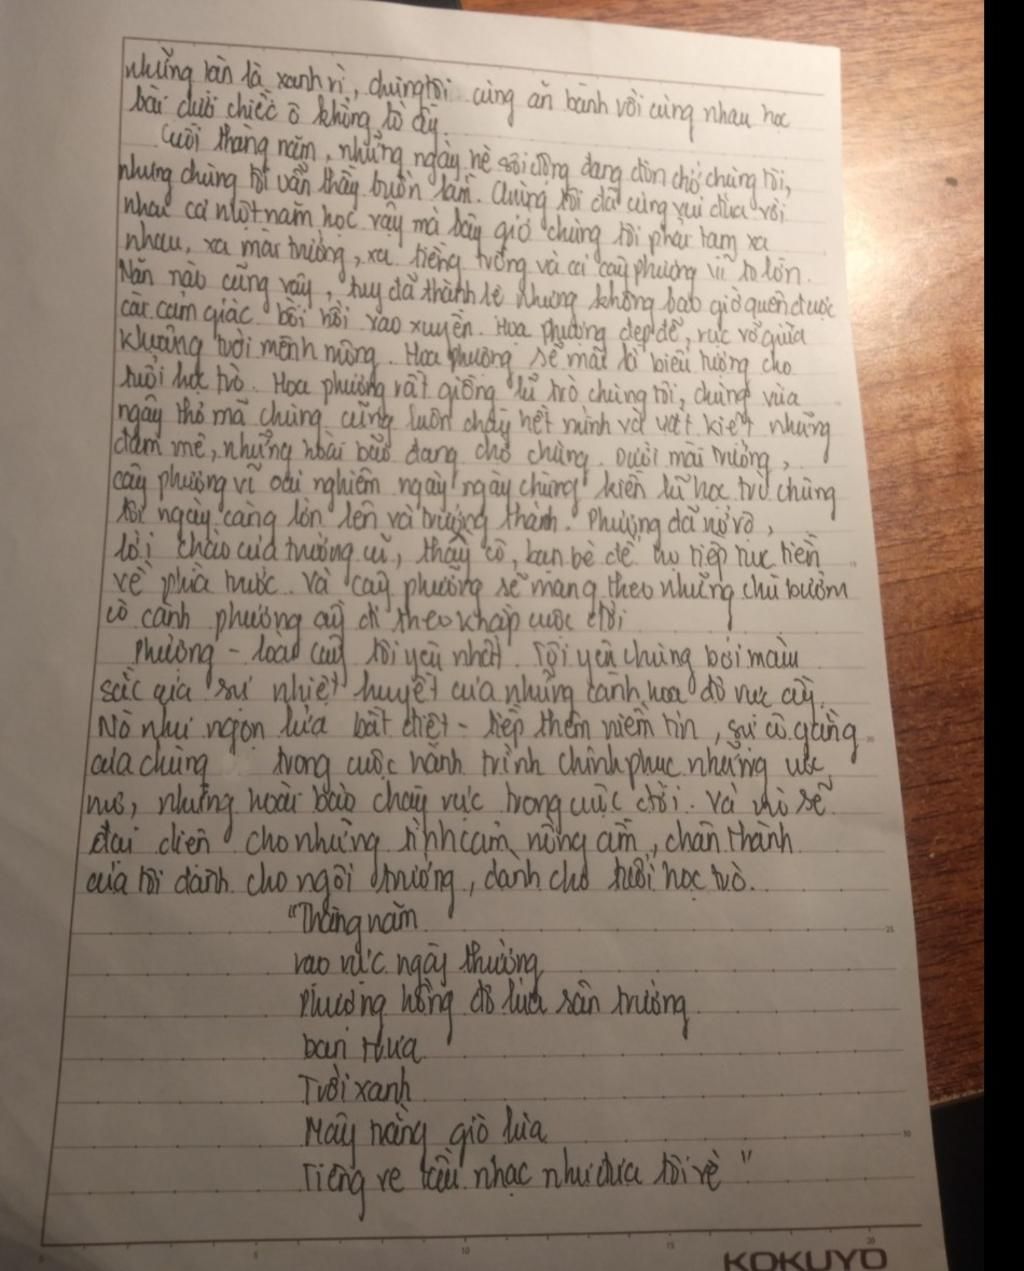 những tán lá xanh rì, chúng tôi cùng ăn bánh với cùng nhau học
bài dưới chiếc ô khổng lồ ấy.
Cuối tháng năm, những ngày hè sôi động đang đón chờ chúng tôi,
nhưng chúng tôi vẫn thấy buồn lắm. Chúng tôi đã cùng vui đùa với
nhau cả một năm học vậy mà bây giờ chúng tôi phải tạm xa
nhau, xa mái trường, xa tiếng trống và cái cây phượng vĩ to lớn.
Năm nào cũng vậy, tuy đã thành lệ nhưng không bao giờ quên được
các cảm giác bồi hồi xao xuyến. Hoa phượng đẹp đẽ, rực rỡ giữa
khoảng trời mênh mông. Hoa phượng sẽ mãi là biểu tượng cho
tuổi học trò. Hoa phượng rất giống lũ trò chúng tôi, chúng vừa
ngây thơ mà chúng cũng luôn cháy hết mình và vắt kiệt những
đam mê, những hoài bão đang chờ chúng. Dưới mái trường,
cây phượng vĩ oai nghiêm ngày ngày chứng kiến lũ học trò chúng
tôi ngày càng lớn lên và trưởng thành. Phượng đã nở rộ,
lời chào của trường cũ, thầy cô, bạn bè để họ tiếp tục tiến
về phía trước. Và cây phượng sẽ mang theo những chú bướm
có cánh phượng ấy đi theo khắp cuộc đời.
Phượng - loài cây tôi yêu nhất. Tôi yêu chúng bởi màu
sắc của sự nhiệt huyết của những cánh hoa đỏ rực ấy.
Nó như ngọn lửa bất diệt - tiếp thêm niềm tin, sự cố gắng
của chúng trong cuộc hành trình chinh phục những ước
mơ, những hoài bão cháy rực trong cuộc đời. Và nó sẽ
đại diện cho những tình cảm nồng ấm, chân thành
của tôi dành cho ngôi trường, dành cho tuổi học trò.
"Tháng năm
rạo rực ngày thường
Phượng hồng đỏ lửa sân trường
ban trưa
Trời xanh
Mây nắng gió lùa
Tiếng ve tấu nhạc như đưa tôi về"
KOKUYO